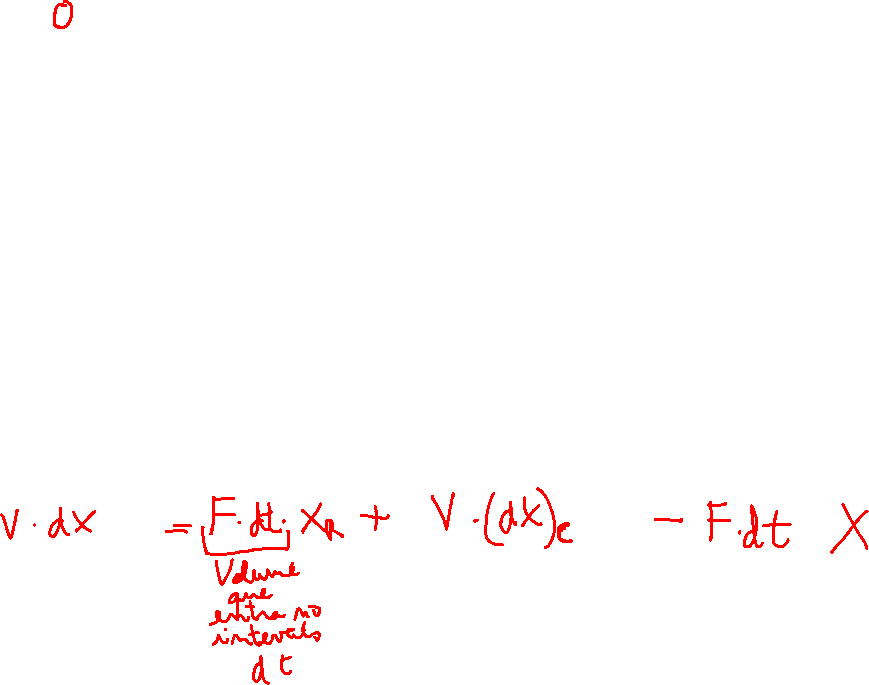 0
V · dX = F · dt · X_R + V · (dX)_c - F · dt X
Volume
que
entra no
intervalo
dt